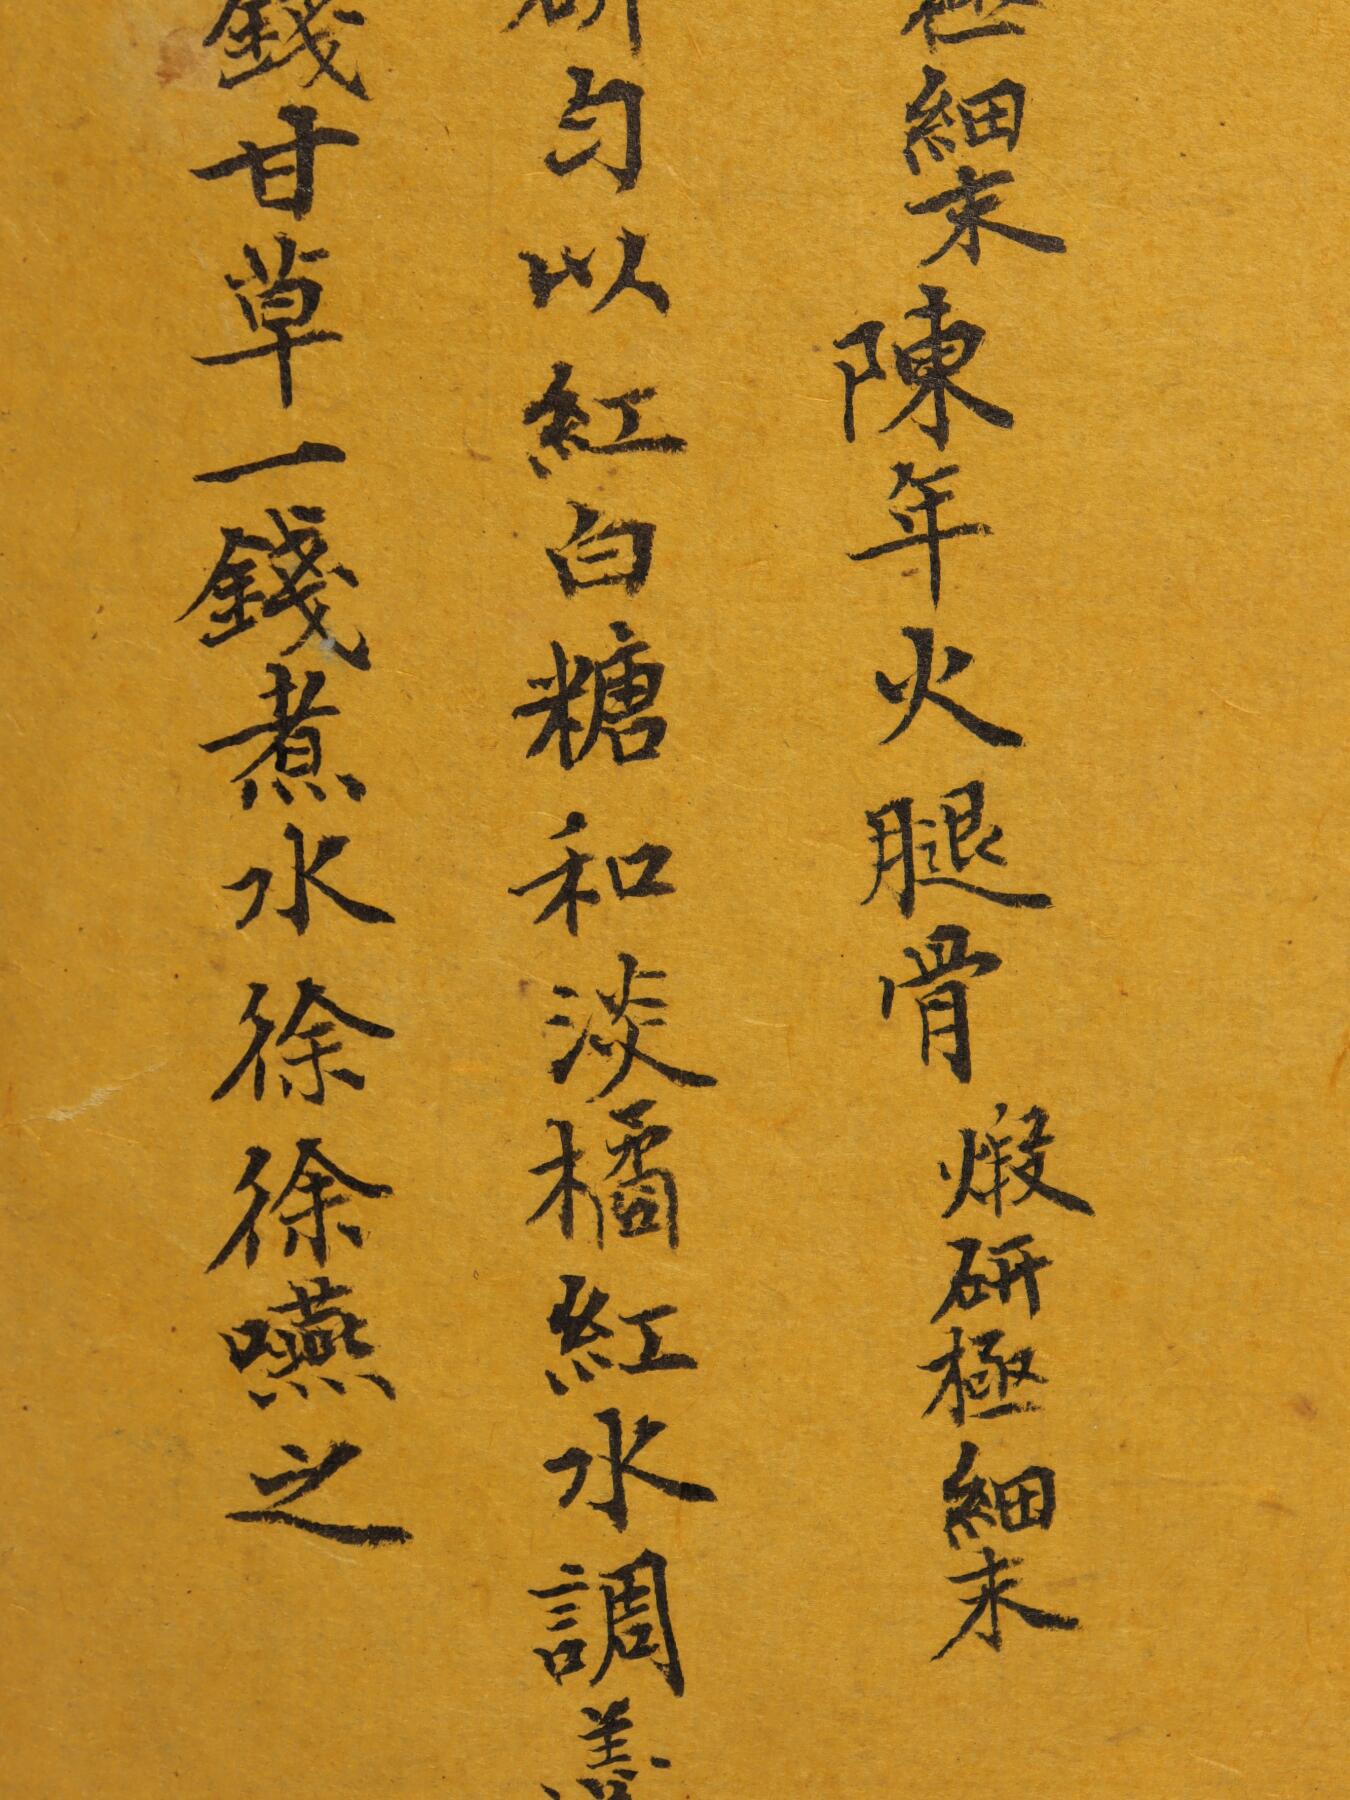 極細末陳年火腿骨煅研極細末
研勻以紅白糖和淡橘紅水調
錢甘草一錢煮水徐徐嚥之